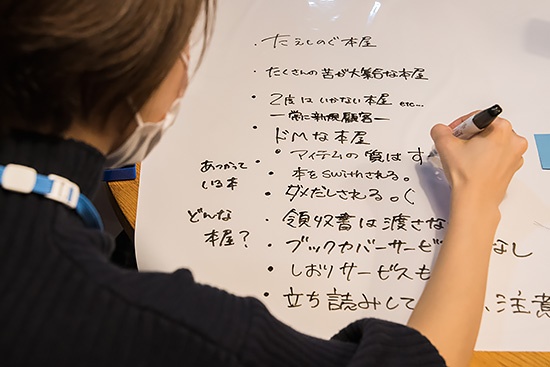 ・たえしのぐ本屋
・たくさんの苦が大集合な本屋
・2度はいかない本屋 etc...
ー常に新規顧客ー
・ドMな本屋
・アイテムの質はす
・本をswithされる。
・ダメだしされる。(
・領収書は渡さな
・ブックカバーサービ なし
・しおりサービスも
・立ち読みして 、注意
あつかって
いる本
どんな
本屋?